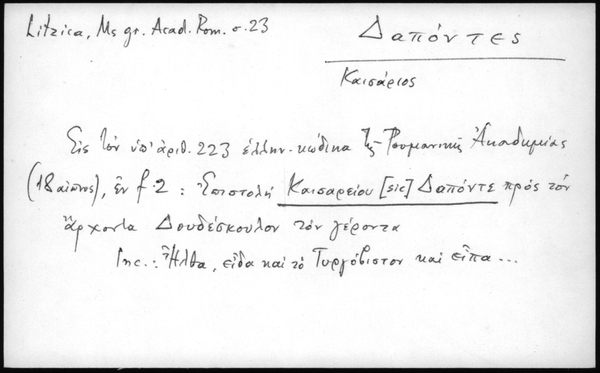 Litzica, Ms gr. Acad. Rom. σ. 23
Δαπόντες
Καισάριος
Εἰς τὸν ὑπ' ἀριθ. 223 ἑλλην. κώδικα τῆς Ρουμανικῆς Ἀκαδημίας
(18 αἰῶνος), ἐν f. 2 : Ἐπιστολὴ Καισαρείου [sic] Δαπόντε πρὸς τὸν
ἄρχοντα Δουδέσκουλον τὸν γέροντα
Inc.: Ἦλθα, εἶδα καὶ τὸ Τυργόβιστον καὶ εἶπα ...